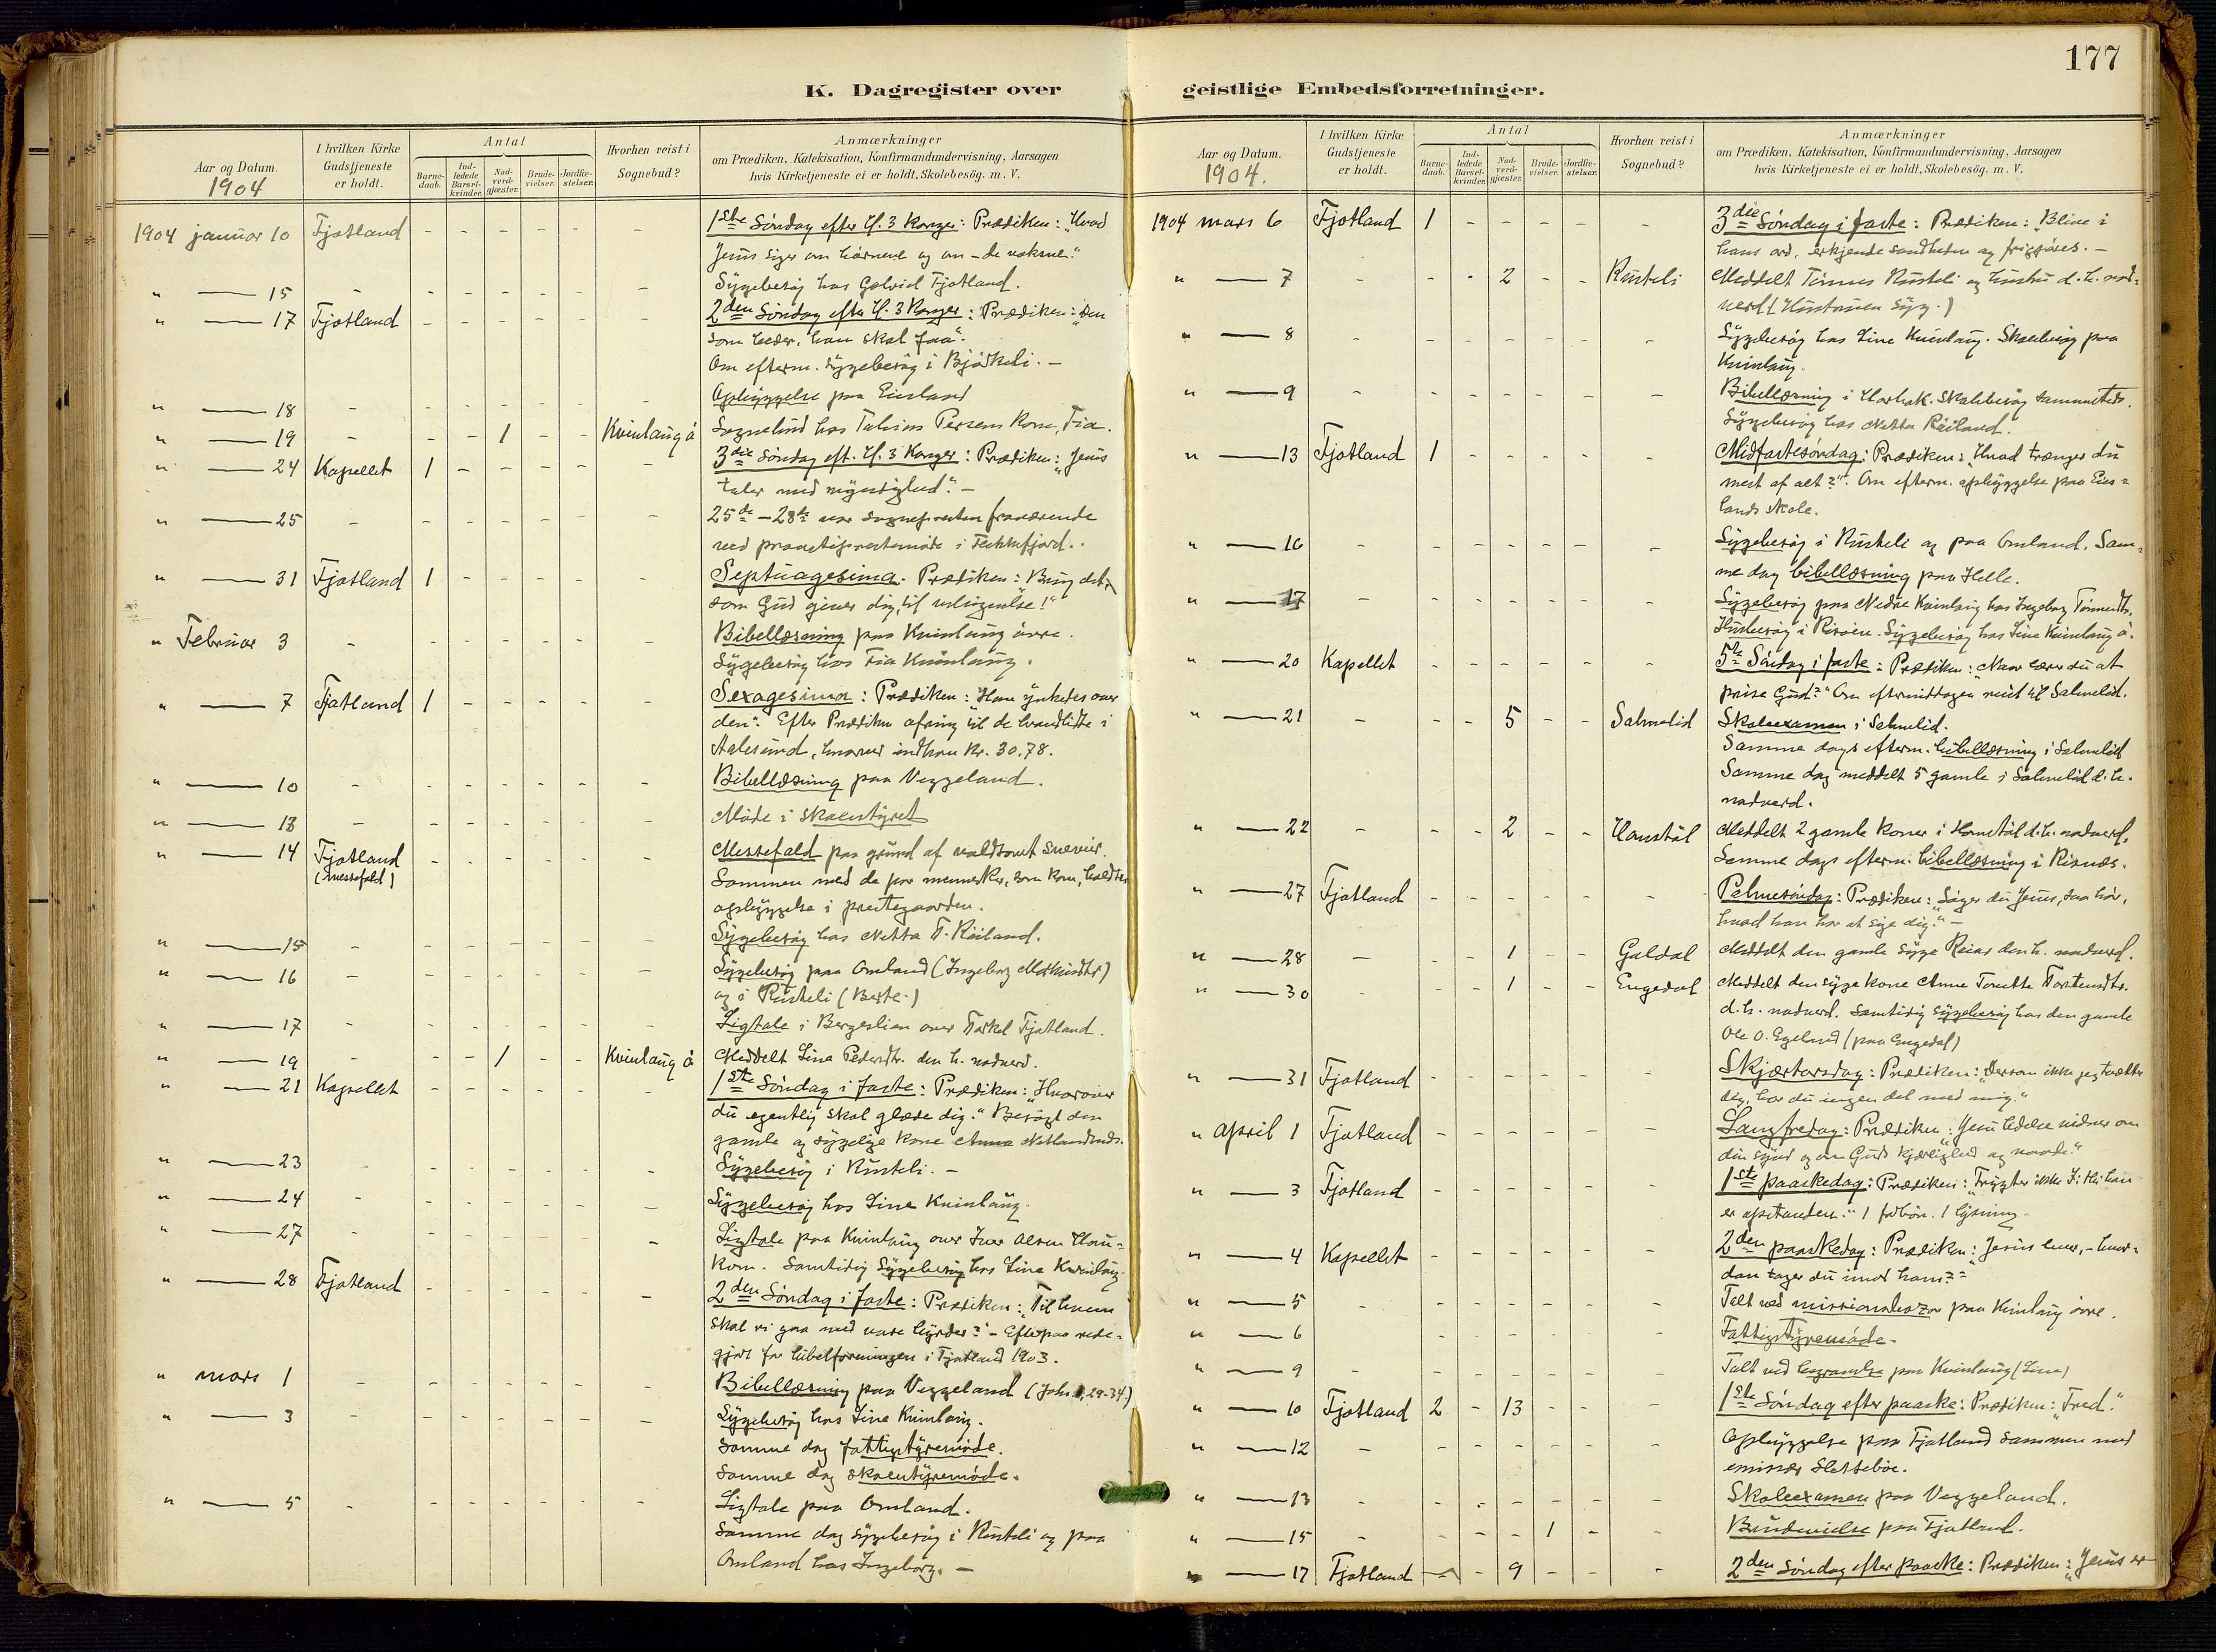 177
K. Dagregister over geistlige Embedsforretninger.
Aar og Datum. 1904
I hvilken Kirke Gudstjeneste er holdt.
Antal
Barne-daab.
Ind-ledede Barsel-kvinder.
Nad-verd-gjæster.
Brude-vielser.
Jordfæ-stelser.
Hvorhen reist i Sognebud?
Anmærkninger
om Prædiken, Katekisation, Konfirmandundervisning, Aarsagen
hvis Kirketjeneste ei er holdt, Skolebesög. m. V.
1904 januar 10 Fjotland - - - - - - 1ste Söndag efter H. 3 Konger: Prædiken: "Hvad
Jesus siger om börnene og om - de voksne."
" 15 - - - - - - - Sygebesög hos Fjotland.
" 17 Fjotland - - - - - - 2den Söndag efter H. 3 Konger: Prædiken: "Den
som beder, han skal faa".
Om efterm. sygebesög i Björkeli. -
" 18 - - - - - - - Opbyggelse paa Eiesland
" 19 - - - 1 - - Kvinlaug ö Sognebud hos Tobias Persens kone, Fia.
" 24 Kapellet 1 - - - - - 3die Söndag eft. H. 3 Konger: Prædiken: "Jesus
taler med myndighed". -
" 25 - - - - - - - 25de - 28de var sognepresten fraværende
ved i Flekkefjord.
" 31 Fjotland 1 - - - - Septuagesima. Prædiken: Brug det,
som Gud giver dig, til velsignelse!"
" Februar 3 - - - - - - - Bibellæsning paa Kvinlaug övre.
Sygebesög hos Fia Kvinlaug.
" 7 Fjotland 1 - - - - - Sexagesima: Prædiken: "Han ynkedes over
dem". Efter Prædiken ofring til de brandlidte i
Aalesund, hvorved indkom kr. 30,78.
" 10 - - - - - - - Bibellæsning paa Veggeland.
" 13 - - - - - - - Möde i skolestyret
" 14 Fjotland (messefald) - - - - - - Messefald paa grund af voldsomt sneveir.
Sammen med de par mennesker, som kom, holdtes
opbyggelse i prestegaarden.
" 15 - - - - - - - Sygebesög hos Netta T. Röiland.
" 16 - - - - - - - Sygebesög paa Omland (Ingeborg)
og i Rusteli (Berte.)
" 17 - - - - - - - Ligtale i Bergeslien over Torkel Fjotland.
" 19 - - - 1 - - Kvinlaug ö Meddelt Sina Pedersdtr. den h. nadverd.
" 21 Kapellet - - - - - - 1ste Söndag i faste: Prædiken: "Hvorover
du egentlig skal glæde dig." Besögt den
gamle og sygelige kone
" 23 - - - - - - - Sygebesög i Rusteli. -
" 24 - - - - - - - Sygebesög hos Sina Kvinlaug.
" 27 - - - - - - - Ligtale paa Kvinlaug over Iver Olsen Hau-
kom. Samtidig Sygebesög hos Sina Kvinlaug.
" 28 Fjotland - - - - - - 2den Söndag i faste: Prædiken: "Til hvem
skal vi gaa med vare byrder?" - Efterpaa rede-
gjort for bibelforeningen i Fjotland 1903.
" mars 1 - - - - - - - Bibellæsning paa Veggeland (Joh. 1, 29-34.)
" 3 - - - - - - - Sygebesög hos Sina Kvinlaug.
Samme dag fattigstyremöde.
Samme dag skolestyremöde.
" 5 - - - - - - - Ligtale paa Omland.
Samme dag sygebesög i Rusteli og paa
Omland hos Ingeborg. -
Aar og Datum. 1904.
I hvilken Kirke Gudstjeneste er holdt.
Antal
Barne-daab.
Ind-ledede Barsel-kvinder.
Nad-verd-gjæster.
Brude-vielser.
Jordfæ-stelser.
Hvorhen reist i Sognebud?
Anmærkninger
om Prædiken, Katekisation, Konfirmandundervisning, Aarsagen
hvis Kirketjeneste ei er holdt, Skolebesög. m. V.
1904 mars 6 Fjotland 1 - - - - - 3die Söndag i faste: Prædiken: "Blive i
hans ord, erkjende sandheden og frigjöres. -
" 7 - - - 2 - - Rusteli Meddelt Tönnes Rusteli og hustru d. h. nad-
verd (Hustruen syg.)
" 8 - - - - - - - Sygebesög hos Sine Kvinlaug. Skolebesög paa
Kvinlaug.
" 9 - - - - - - - Bibellæsning i Skolebesög sammesteds.
Sygebesög hos Netta Röiland.
" 13 Fjotland 1 - - - - - Midfastesöndag: Prædiken: "Hvad trænger du
mest af alt?". Om efterm. opbyggelse paa Eies-
lands skole.
" 16 - - - - - - - Sygebesög i Rusteli og paa Omland. Sam-
me dag bibellæsning paa Helle.
" 17 - - - - - - - Sygebesög paa Nedre Kvinlaug hos Ingeborg Tönnesdtr.
Husbesög i Sygebesög hos Sina Kvinlaug ö.
" 20 Kapellet - - - - - - 5te Söndag i faste: Prædiken: "Naar lærer du at
prise Gud?" Om eftermiddagen reist til Salmelid.
" 21 - - - 5 - - Salmelid Skoleexamen i Salmelid.
Samme dags efterm. bibellæsning i Salmelid
Samme dag meddelt 5 gamle i Salmelid d. h.
nadverd.
" 22 - - - 2 - - Homstöl Meddelt 2 gamle koner i Homstöl d. h. nadverd.
Samme dags efterm. bibellæsning i Risnes.
" 27 Fjotland - - - - - - Palmesöndag: Prædiken: "Söger du Jesus, saa hör,
hvad han har at sige dig." -
" 28 - - - 1 - - Galdal Meddelt den gamle syge Reiar den h. nadverd.
" 30 - - - 1 - - Engedal Meddelt den syge kone Anne Tonette Torstensdtr.
d. h. nadverd. Samtidig sygebesög hos den gamle
Ole O. Egeland (paa Engedal)
" 31 Fjotland - - - - - - Skjærtorsdag: Prædiken: "Dersom ikke jeg tvætter
dig, har du ingen del med mig."
" april 1 Fjotland - - - - - - Langfredag: Prædiken: "Jesu lidelse vidner om
din synd og om Guds kjærlighed og naade."
" 3 Fjotland - - - - - - 1ste paaskedag: Prædiken: "Frygter ikke I! Thi han
er opstanden." 1 forbön. 1 lysning.
" 4 Kapellet - - - - - - 2den paaskedag: Prædiken: "Jesus lever, - hvor-
dan tager du imod ham?"
" 5 - - - - - - - Talt ved missionsbazar paa Kvinlaug övre.
" 6 - - - - - - Fattigstyremöde.
" 9 - - - - - - - Talt ved begravelse paa Kvinlaug (Sina)
" 10 Fjotland 2 - 13 - - - 1ste Söndag efter paaske: Prædiken: "Fred."
" 12 - - - - - - - Opbyggelse paa Fjotland sammen med
emissær Sletteböe.
" 13 - - - - - - - Skoleexamen paa Veggeland.
" 15 - - - - 1 - - Brudevielse paa Fjotland.
" 17 Fjotland - - 9 - - - 2den Söndag efter Paaske: Prædiken: "Jesus er